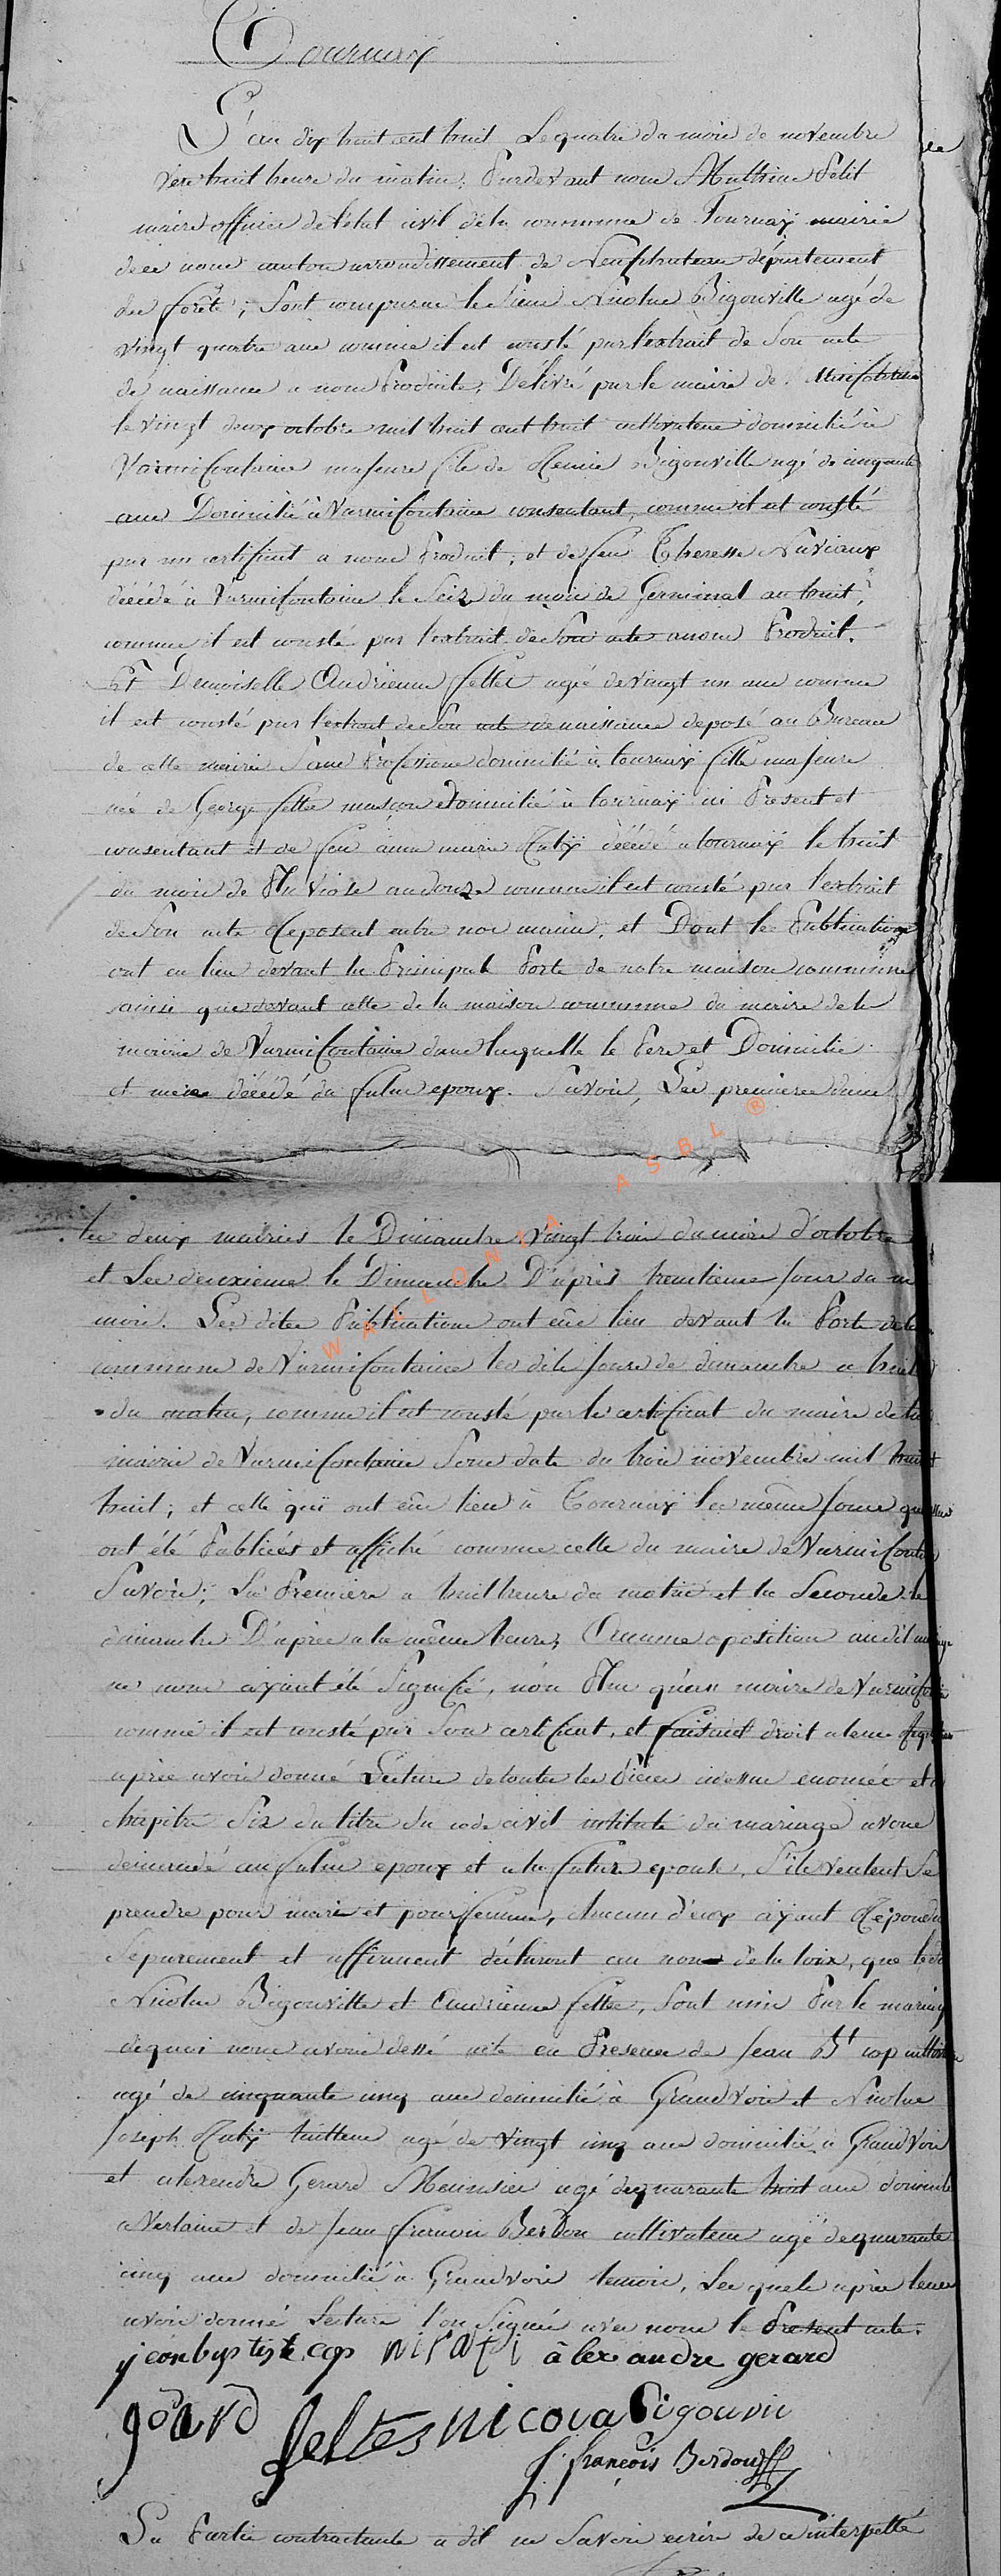 Tournaÿ
L'an dix huit cent huit Le quatre du mois de novembre
vers huit heure du matin, Pardevant nous Mathieu Petit
maire officier de l'etat civil de la commune de Tournaÿ mairie
de ce nom canton arrondissement de Neufchateau département
des forêts; Sont comparue le Sieur Nicolas Bigonville agé de
vingt quatre ans comme il est consté par l'extrait de Son acte
de naissance a nous Produite, Délivré par le maire de
le vingt deux octobre mil huit cent huit cultivateur domicilié à
Varmifontaine majeure fils de Remie Bigonville agé de cinquante
ans Domicilié à Varmifontaine consentant, comme il est consté
par un certificat a nous Produit, et de feu Theresse Naviaux
décédé à Varmifontaine le Seize du mois de Germinal an huit,
comme il est consté par l'extrait de Son acte a nous Produit.
Et Demoiselle Andrienne feltes agée de vingt un ans comme
il est consté par l'extrait de Son acte de naissance deposé au Bureau
de cette mairie Sans Professions domicilié à tournaÿ fille majeure
née de George feltes masçon et domicilié à tournaÿ ici Present et
consentant et de feu anne marie Ratÿ décédé a tournaÿ le huit
du mois de Niviose an douze comme il est consté par l'extrait
de Son acte Reposent entre nos mains, et Dont les Publications
ont eu lieu devant la Principale Porte de notre maison commune
ainsi que devant celle de la maison commune du mairie de la
mairie de Varmifontaine dans laquelle le Pere et Domicilie
et mere décédé du futur epoux. Savoir, Les premieres dans
les deux mairies le Dimanche vingt trois du mois d'octobre
et Les deuxieme le Dimanche D'après trentieme jour du
mois. Les dites Publications ont eûe lieu devant la Porte de la
commune de Varmifontaine les dits jours de dimanche a huit
du matin, comme il est consté par le certificat du maire de la
mairie de Varmifontaine Sous date du trois novembre mil huit
huit; et celle qui ont eûe lieu à Tournaÿ les même jours que
ont été Publiées et affiché comme celle du maire de Varmifontaine
Savoir; La Premiere a huit heure du matin et la Seconde le
dimanche D'après a la même heure; Aucune oposition audit mariage
ne nous aÿant été Signifié, non Plus qu'au maire de Varmifontaine
comme il est consté par Son certificat, et faisant droit a leur
après avoir donné Lecture de toutes les Pieces ci dessus enoncée et
chapitre Six du titre du code civil intitulé du mariage avons
demandé au futur epoux et a la future epouse, S'ils veulent Se
prendre pour mari et pour femme, chacun d'eux aÿant Répondu
Separement et affirment déclaront au nom de la loix, que les
Nicolas Bigonville et Andrienne feltes, Sont unis Par le mariage
de quoi nous avons dessé acte en Presence de Jean Bt cop cultivateur
agé de cinquante cinq ans domicilié à Grandvoir et Nicolas
Joseph Ratÿ tailleur agé de vingt cinq ans domicilié à Grandvoir
et alexandre Gerard Meunier agé de quarante huit ans domicilié
a Verlaine et de Jean francois Berdou cultivateur agé de quarante
cinq ans domicilié à Grandvoir temoin, Les quels après leur
avoir donné Lecture l'on Signée avec nous le Present acte.
jeanbaptiste cop alexandre gerard
feltes nicola Bigonvil
j. françois Berdou
La Partie contractante a dit ne Savoir ecrire de ce interpellé